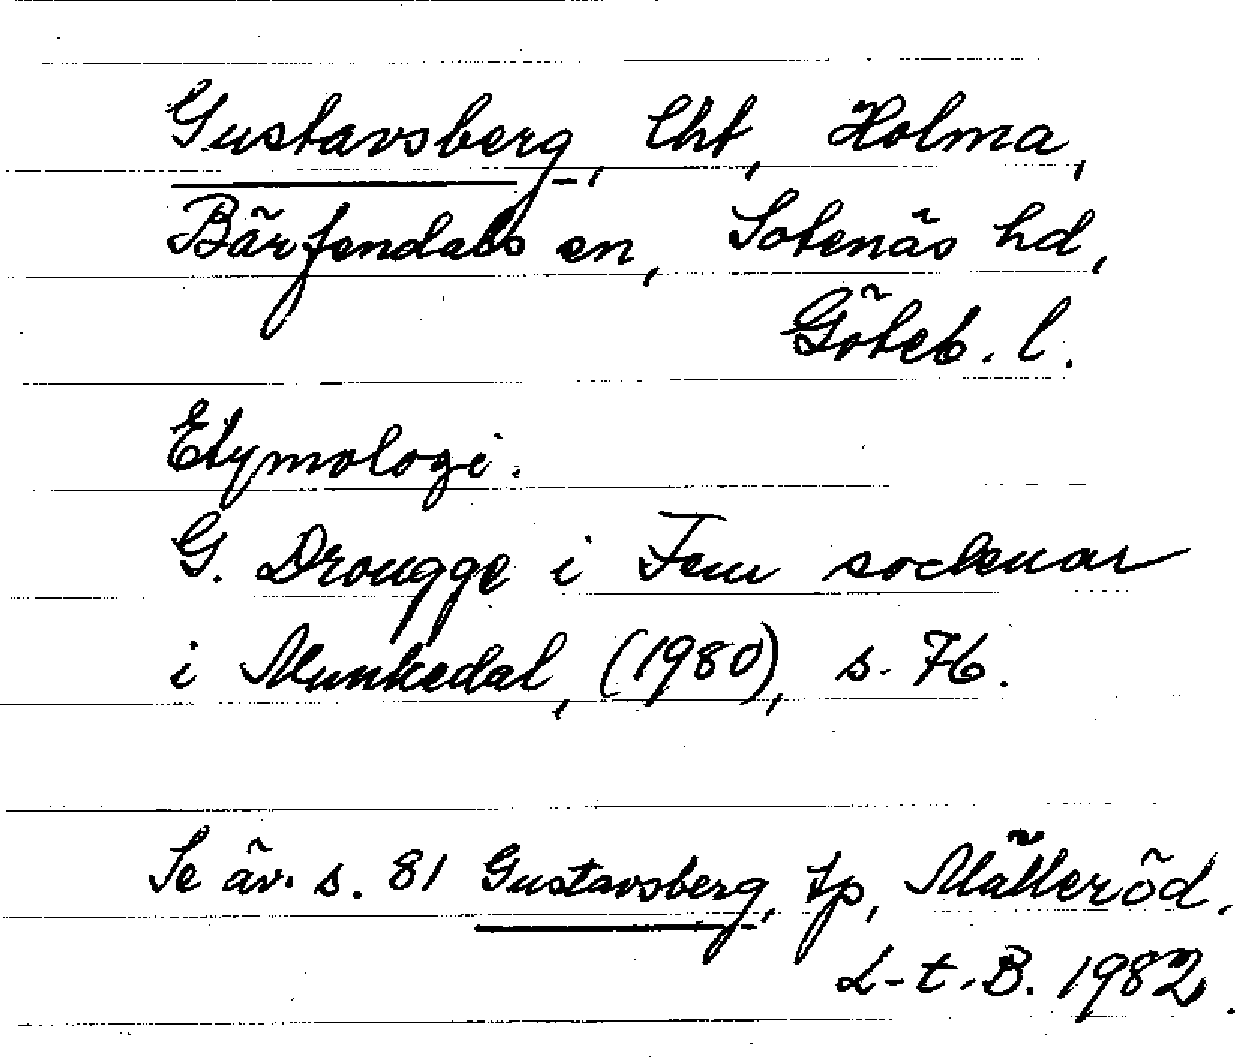 Gustavsberg, lht, Holma,
Bärfendals sn, Sotenäs hd,
Göteb. l.
Etymologi.
G. Drougge i Fem socknar
i Munkedal, (1980), s. 76.
Se äv. s. 81 Gustavsberg, tp, Mälleröd.
L-t. B. 1982.